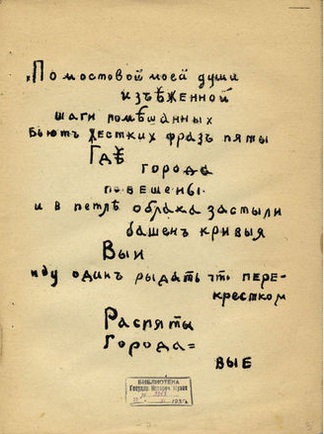 „По мостовой моей души
изъѣженной
шаги помѣшанных
бьютъ жестких фразъ пяты
Гдѣ
города
повешены
и в петлѣ облака застыли
башенъ кривыя
Выи
иду одинъ рыдать что пере-
крестком
Распяты
Города=
вые
БИБЛИОТЕКА